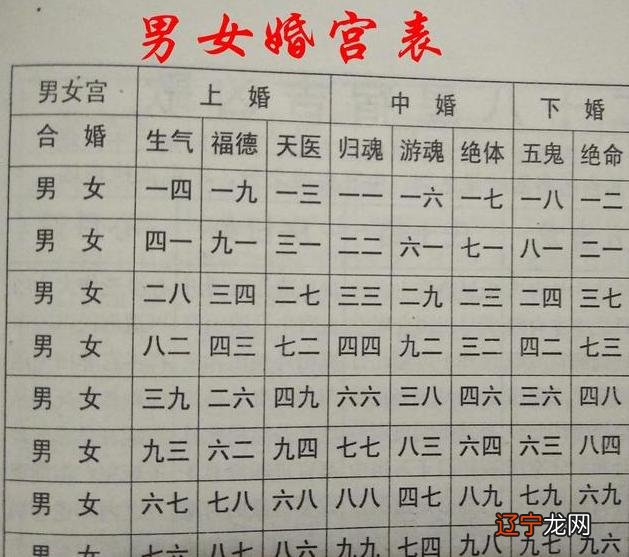 男女婚宫表
男女宫 上婚 中婚 下婚
合婚 生气 福德 天医 归魂 游魂 绝体 五鬼 绝命
男女 一四 一九 一三 一一 一六 一七 一八 一二
男女 四一 九一 三一 二二 六一 七一 八一 二一
男女 二八 三四 二七 三三 二九 二三 二四 三七
男女 八二 四三 七二 四四 九二 三二 四二 七三
男女 三九 二六 四九 六六 三八 四六 三六 四八
男女 九三 六二 九四 七七 八三 六四 六三 八四
男女 六七 七八 六八 八八 四七 八九 七九 六九
男女 七六 八七 八六 九九 七四 九八 九七 九六
辽宁龙网